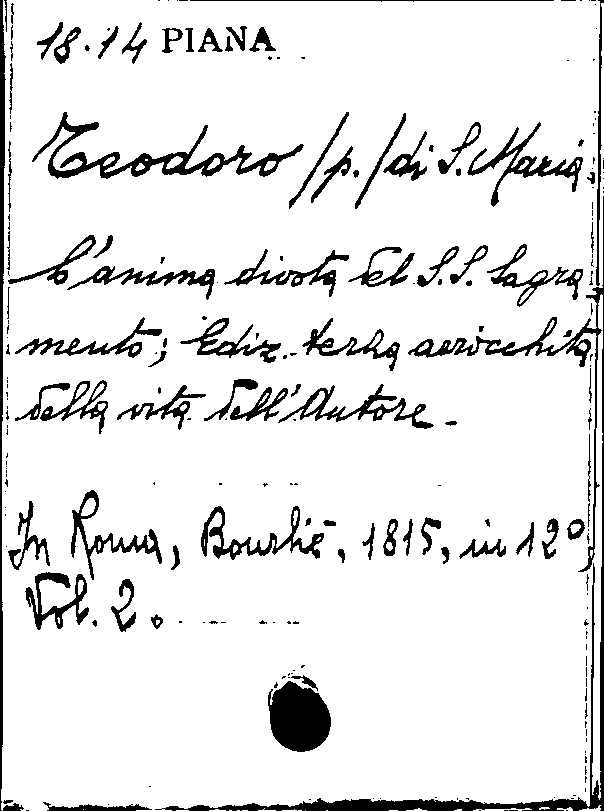 18.14 PIANA
Teodoro /p./ di S. Maria.
L'anima divota del S.S. Sagra
mento; Ediz. terza arricchita
della vita dell'Autore.
In Roma, Bourlié, 1815, in 12°,
Vol. 2.